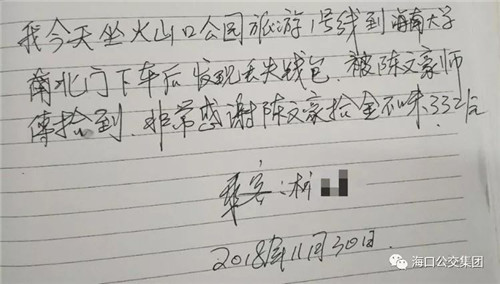 我今天坐火山口公园旅游1号线到海南大学
南北门下车后发现丢失钱包.被陈文豪师
傅捡到.非常感谢陈文豪拾金不昧.332元
乘客:
2018年11月30日.
海口公交集团